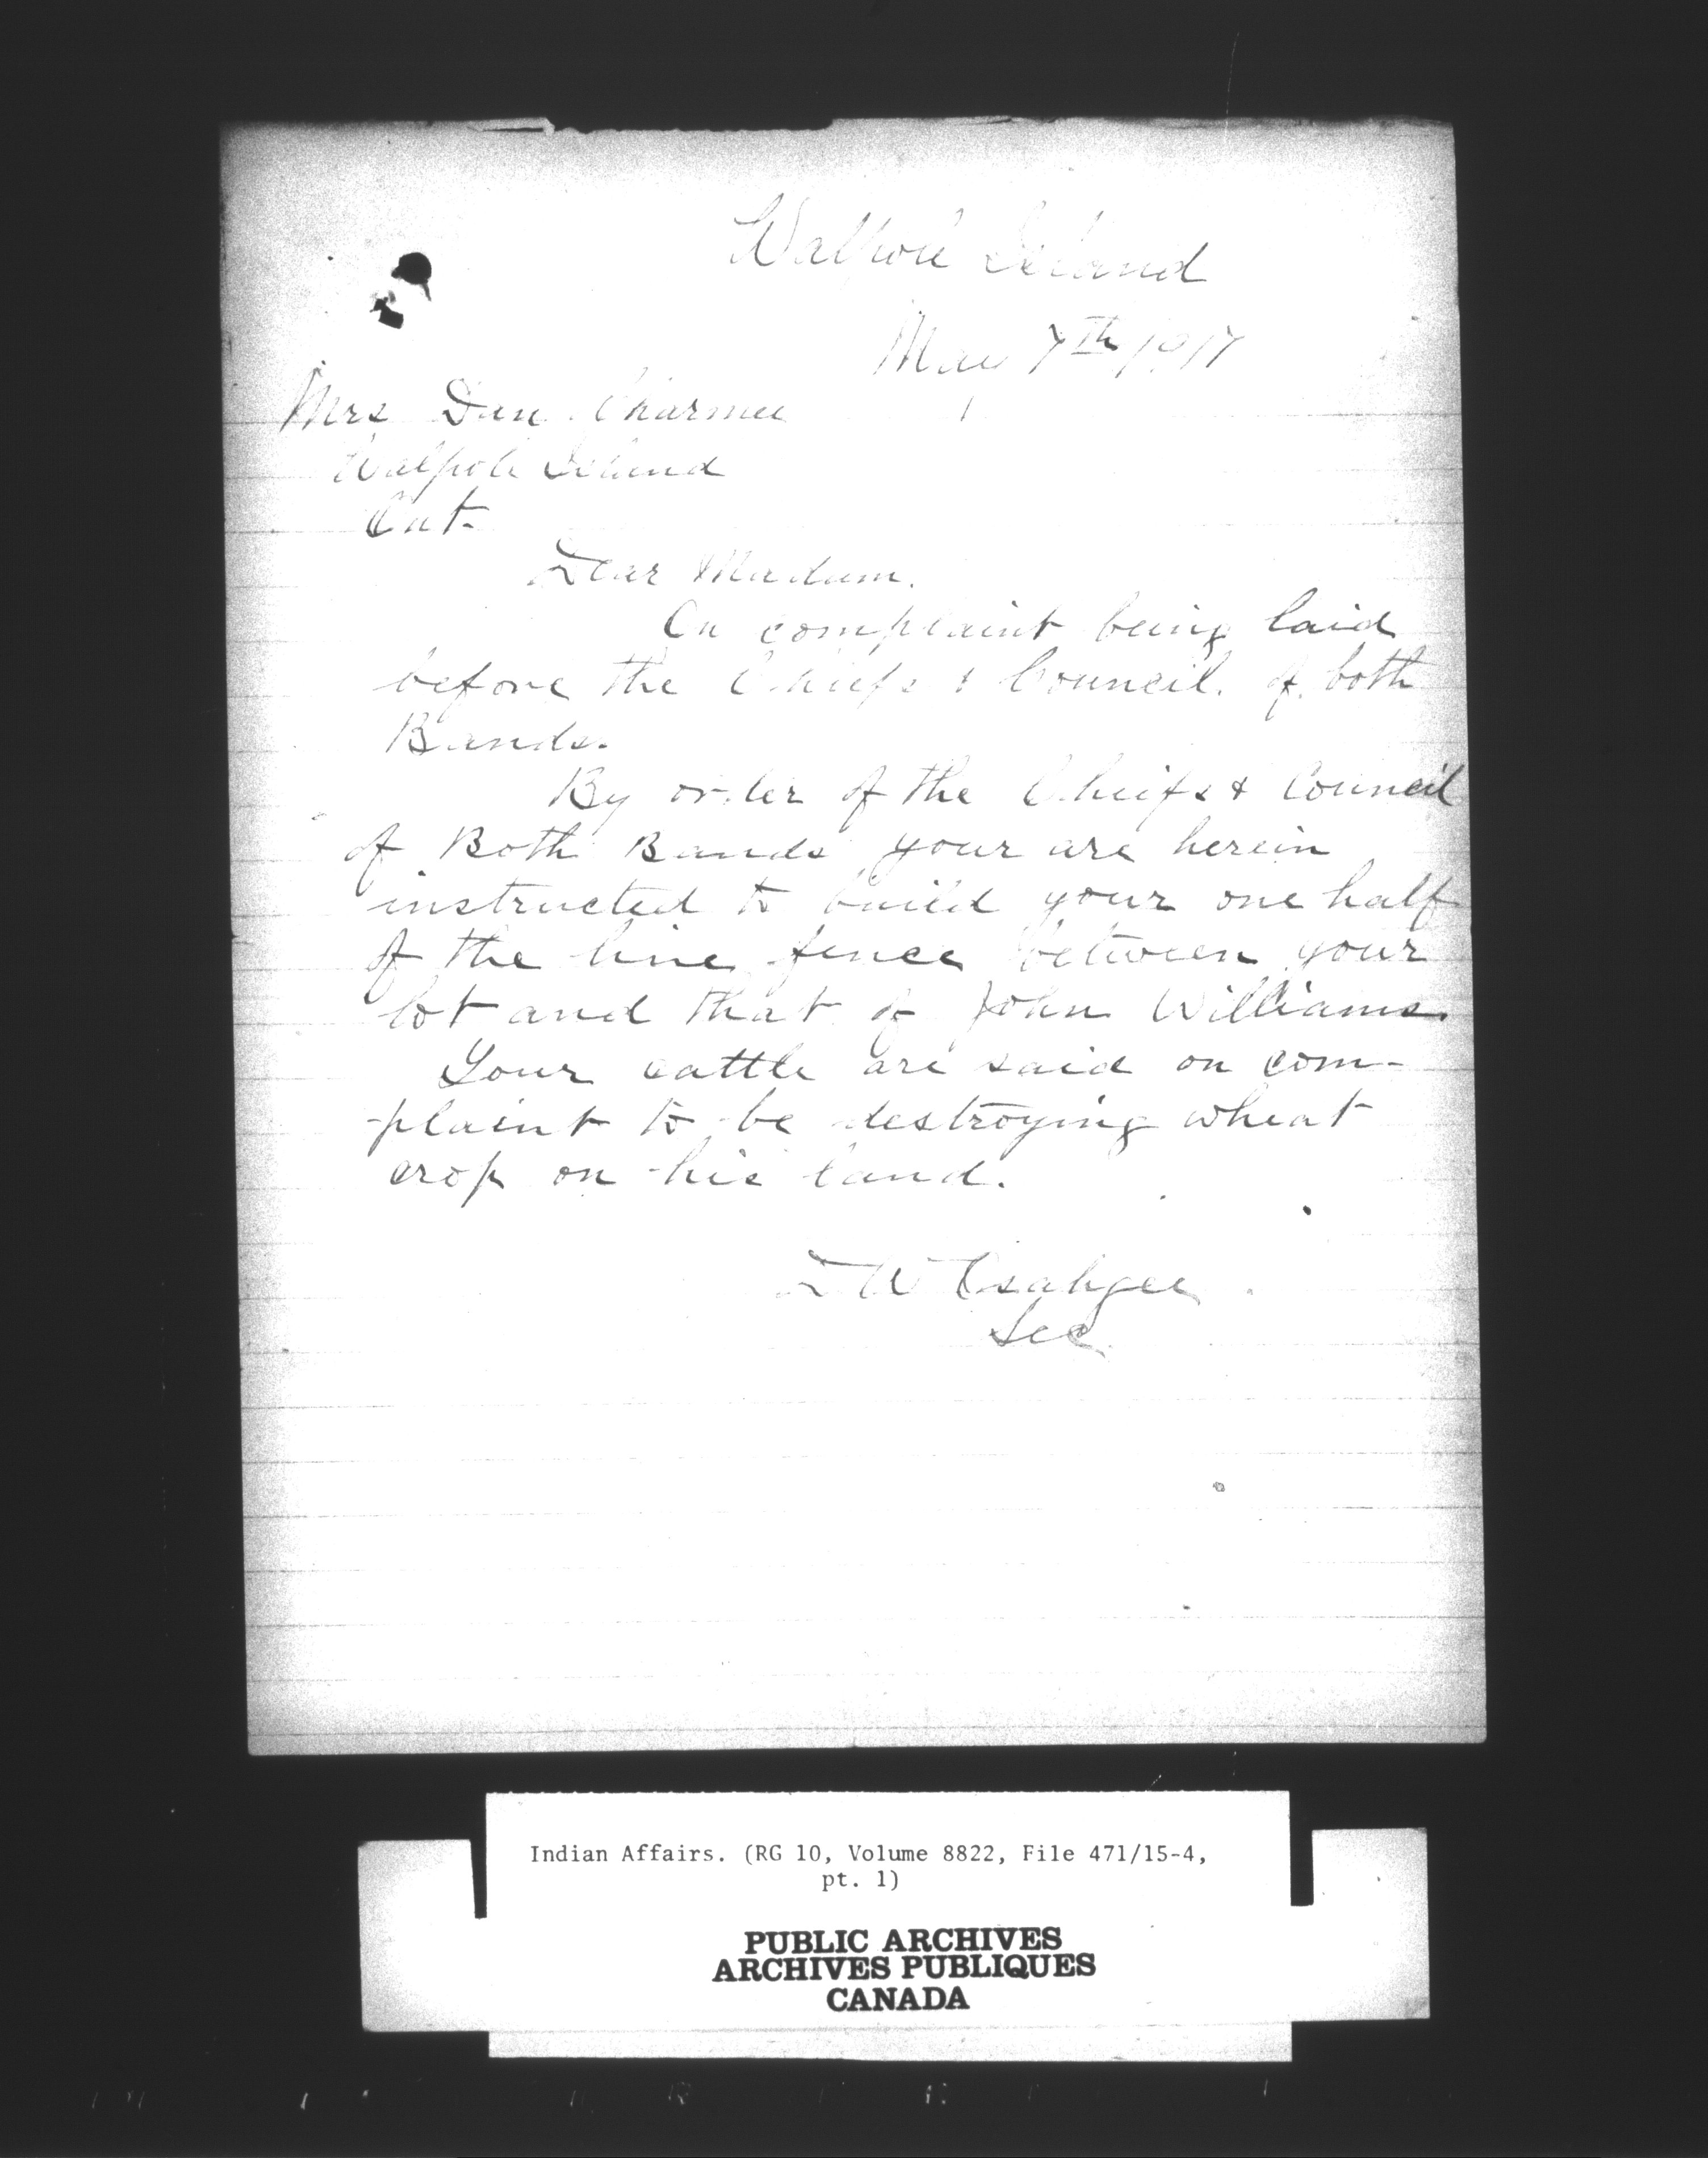 Walpole Island
May 7th 1917
Mrs Dan
Walpole Island
Ont.
Dear Madam.
On complaint being laid
before the Chiefs & Council. of both
Bands.
By order of the Cheifs & Council
of Both Bands your are herein
instructed to build your one half
of the line fence between your
lot and that of John Williams.
Your cattle are said on com-
-plaint to be destroying wheat
crop on his land.
W
Sec.
Indian Affairs. (RG 10, Volume 8822, File 471/15-4,
pt. 1)
PUBLIC ARCHIVES
ARCHIVES PUBLIQUES
CANADA